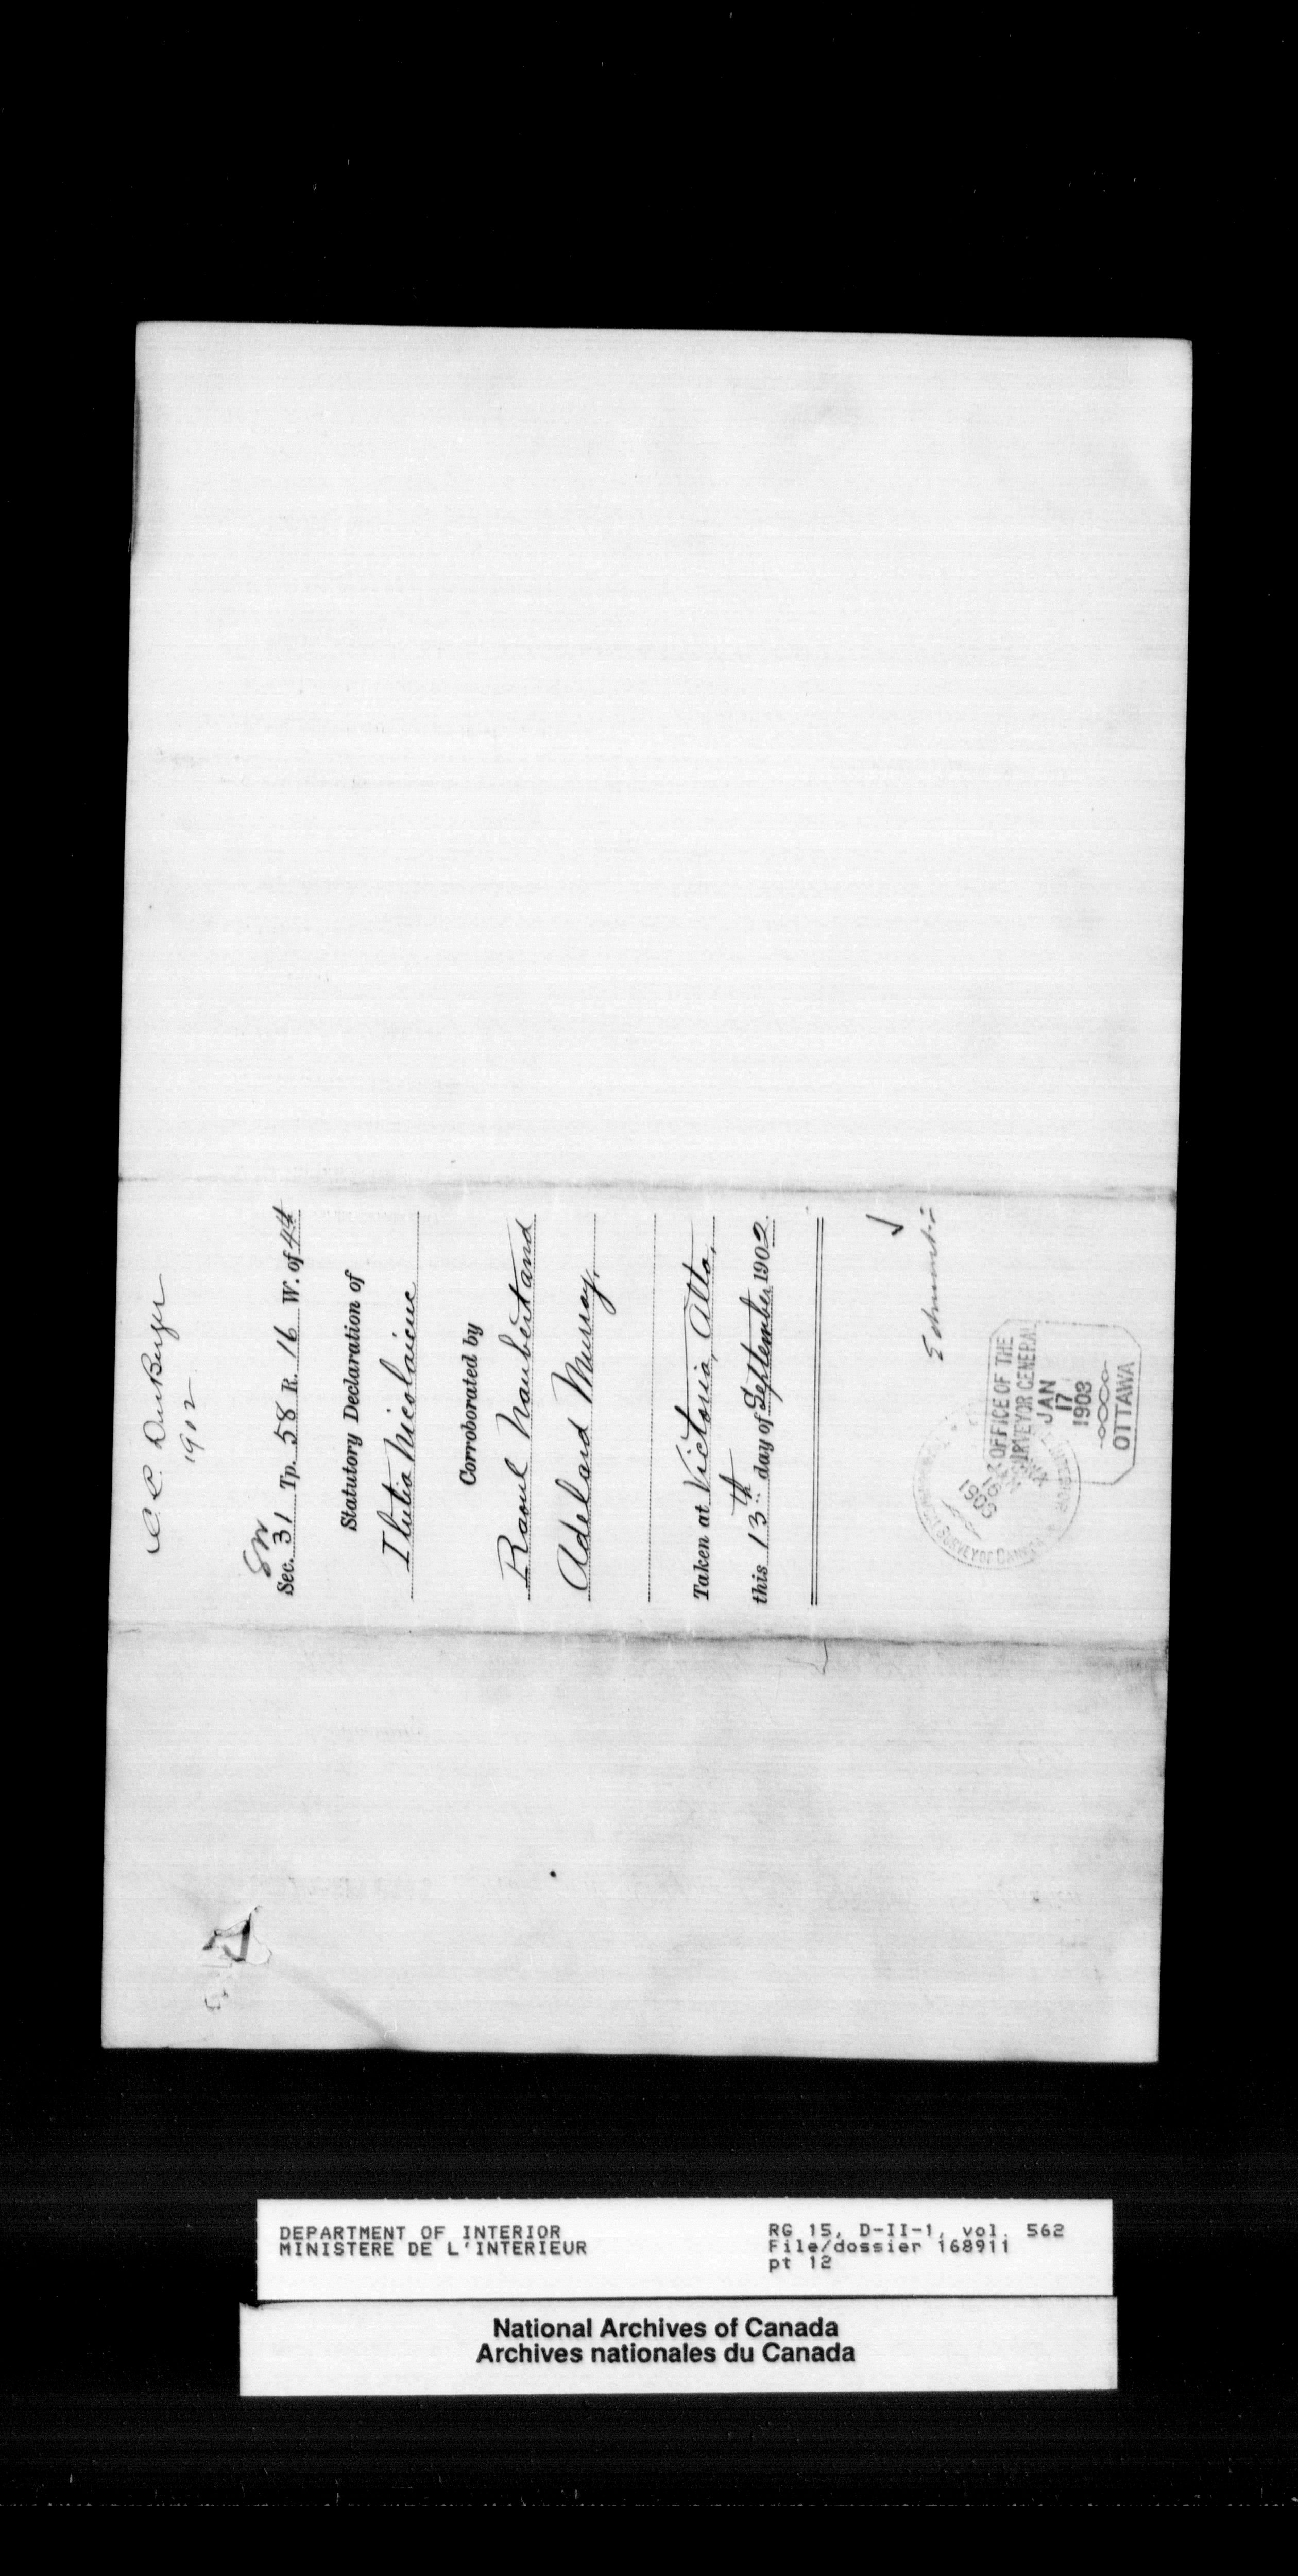 C. C. DuBerger
1902
SW
Sec. 31 Tp. 58 R. 16 W. of 4th
Statutory Declaration of
Ilutia Nicolaiuc
Corroborated by
Raoul Naubert and
Adelard Murray,
Taken at Victoria, Alta,
this 13th day of September 1902.
TOPOGRAPHICAL SURVEY OF CANADA
1903
OFFICE OF THE
SURVEYOR GENERAL
JAN
17
1903
OTTAWA
DEPARTMENT OF INTERIOR
MINISTERE DE L'INTERIEUR
RG 15, D-II-1, vol. 562
File/dossier 168911
pt 12
National Archives of Canada
Archives nationales du Canada